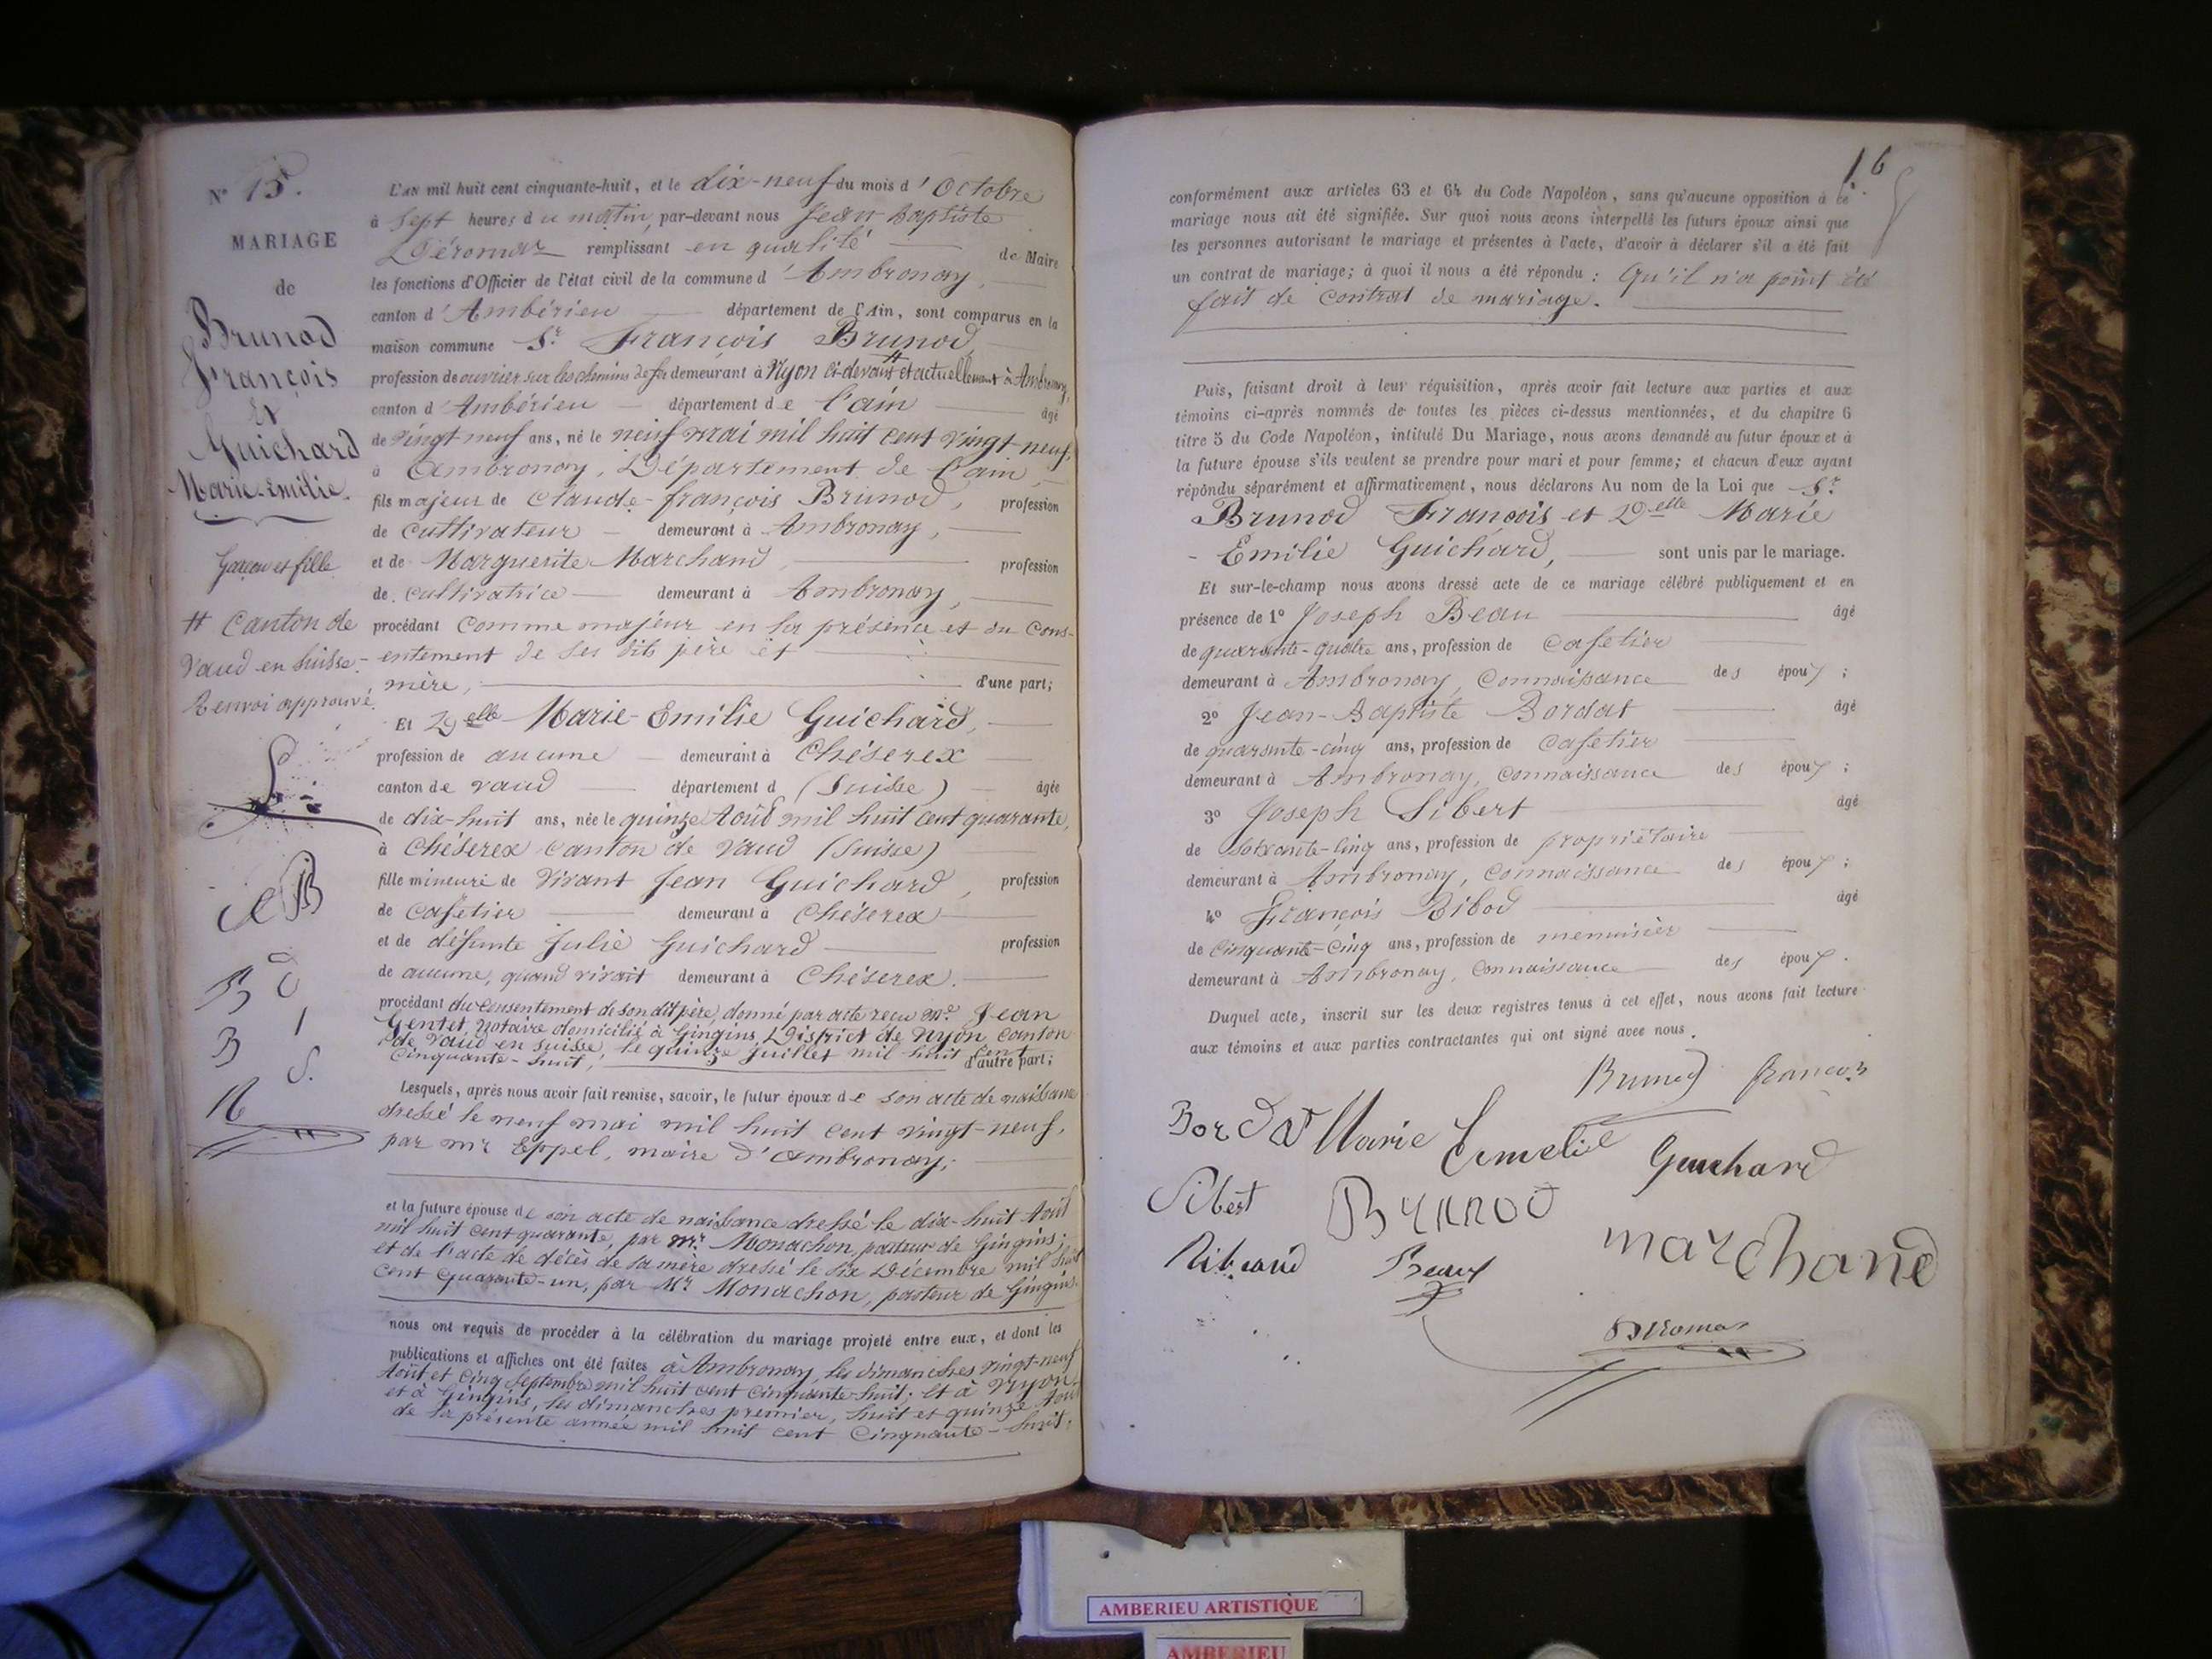 N° 15.
MARIAGE
de
Brunod
François
Et
Guichard
Marie-Emilie.
Garçon et fille
# Canton de
Vaud en Suisse.
Renvoi approuvé.
L'AN mil huit cent cinquante-huit, et le dix-neuf du mois d'Octobre
à Sept heures du matin, par-devant nous Jean Baptiste
Déromas remplissant en qualité de Maire
les fonctions d'Officier de l'état civil de la commune d'Ambronay,
canton d'Ambérieu département de l'Ain, sont comparus en la
maison commune Sr. François Brunod,
profession de ouvrier sur les chemins de fer demeurant à Nyon ci-devant # et actuellement à Ambronay,
canton d'Ambérieu département de l'ain âgé
de vingt neuf ans, né le neuf mai mil huit cent vingt-neuf,
à Ambronay, Département de l'ain,
fils majeur de Claude-françois Brunod, profession
de cultivateur demeurant à Ambronay,
et de Marguerite Marchand, profession
de cultivatrice demeurant à Ambronay,
procédant comme majeur en la présence et du cons-
entement de ses dits père et
mère, d'une part;
Et Delle Marie-Emilie Guichard,
profession de aucune demeurant à Chéserex
canton de vaud département d (Suisse) âgée
de dix-huit ans, née le quinze Août mil huit cent quarante,
à Chéserex canton de Vaud (Suisse)
fille mineure de vivant Jean Guichard, profession
de cafetier demeurant à Chéserex
et de défunte Julie Guichard profession
de aucune, quand vivait demeurant à Chéserex.
procédant du consentement de son dit père, donné par acte reçu me. Jean
Gentet, notaire domicilié à Gingins, District de Nyon, canton
de Vaud en suisse, le quinze juillet mil huit cent
Cinquante-huit, d'autre part;
Lesquels, après nous avoir fait remise, savoir, le futur époux de son acte de naissance
dressé le neuf mai mil huit cent vingt-neuf,
par mr Eppel, maire d'Ambronay;
et la future épouse de son acte de naissance dressé le dix-huit Août
mil huit cent quarante, par mr. Monachon, pasteur de Gingins;
et de l'acte de décès de sa mère dressé le six Décembre mil huit
cent quarante-un, par Mr Monachon, pasteur de Gingins.
nous ont requis de procéder à la célébration du mariage projeté entre eux, et dont les
publications et affiches ont été faites à Ambronay, les dimanches vingt-neuf
Août et Cinq Septembre mil huit cent cinquante-huit; et à Nyon
et à Gingins, les dimanches premier, huit et quinze Août
de la présente année mil huit cent Cinquante-huit.
16
conformément aux articles 63 et 64 du Code Napoléon, sans qu'aucune opposition à ce
mariage nous ait été signifiée. Sur quoi nous avons interpellé les futurs époux ainsi que
les personnes autorisant le mariage et présentes à l'acte, d'avoir à déclarer s'il a été fait
un contrat de mariage; à quoi il nous a été répondu : Qu'il n'a point été
fait de contrat de mariage.
Puis, faisant droit à leur réquisition, après avoir fait lecture aux parties et aux
témoins ci-après nommés de toutes les pièces ci-dessus mentionnées, et du chapitre 6
titre 5 du Code Napoléon, intitulé Du Mariage, nous avons demandé au futur époux et à
la future épouse s'ils veulent se prendre pour mari et pour femme; et chacun d'eux ayant
répondu séparément et affirmativement, nous déclarons Au nom de la Loi que Sr.
Brunod François et Delle Marie
-Emilie Guichard, sont unis par le mariage.
Et sur-le-champ nous avons dressé acte de ce mariage célébré publiquement et en
présence de 1° Joseph Beau âgé
de quarante-quatre ans, profession de cafetier
demeurant à Ambronay, connaissance des époux;
2° Jean-Baptiste Bordat âgé
de quarante-cinq ans, profession de cafetier
demeurant à Ambronay, connaissance des époux;
3° Joseph Sibert âgé
de soixante-cinq ans, profession de propriétaire
demeurant à Ambronay, connaissance des époux;
4° François Ribod âgé
de cinquante-cinq ans, profession de menuisier
demeurant à Ambronay, connaissance des époux.
Duquel acte, inscrit sur les deux registres tenus à cet effet, nous avons fait lecture
aux témoins et aux parties contractantes qui ont signé avec nous.
Brunod françois
Bordat Marie Emelie Guichard
Sibert Brunod marchand
Beau
AMBERIEU ARTISTIQUE
AMBERIEU